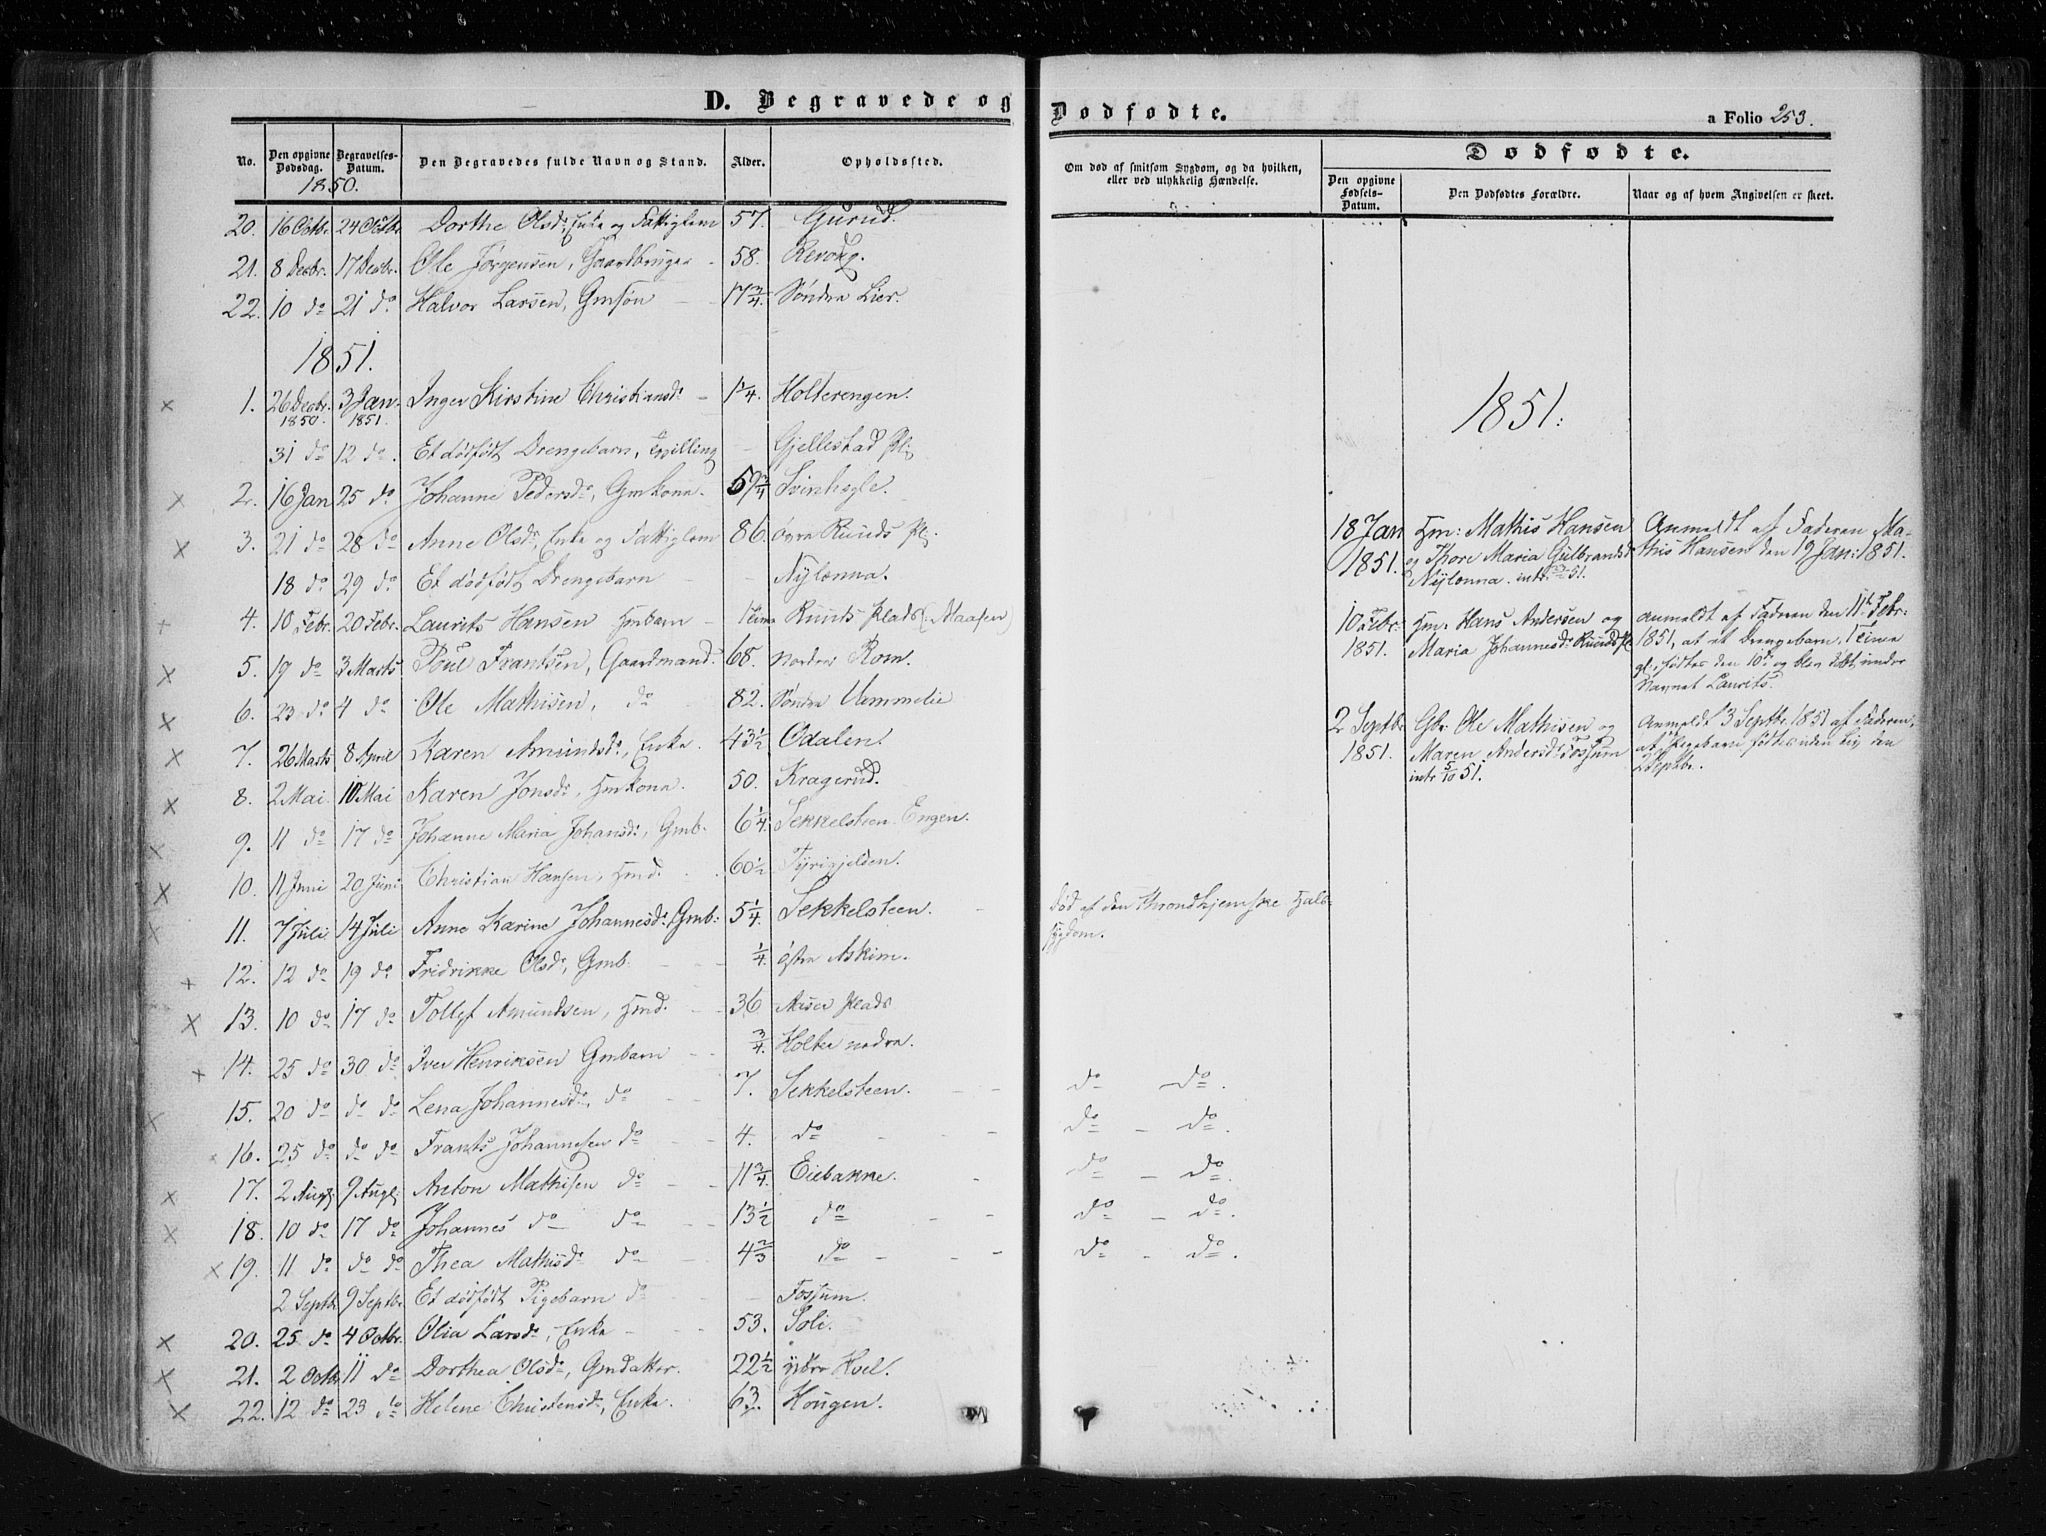 D. Begravede og Dødfødte.
a Folio 253.
No. Den opgivne Dødsdag. Begravelses-Datum. Den Begravedes fulde Navn og Stand. Alder. Opholdssted.
Om død af smitsom Sygdom, og da hvilken, eller ved ulykkelig Hændelse.
Dødfødte.
Den opgivne Fødsels-Datum. Den Dødfødtes Forældre. Naar og af hvem Angivelsen er skeet.
1850.
20. 16 Octbr. 24 Octbr. Dorthe Olsdr. Enke og Fattiglem 57. Gurud.
21. 8 Decbr. 17 Decbr. Ole Jørgensen, Gaardbruger 58. Revoug.
22. 10 do 21 do Halvor Larsen, Gmsøn 17 3/4. Søndre Lier.
1851.
1. 26 Decbr. 1850. 3 Jan. 1851. Inger Kirstine Christiansdr. 1 1/4. Holterengen.
31 do 12 do. Et dødfødt Drengebarn, Tvilling Gjellestad Pl.
2. 16 Jan 25 do Johanne Pedersdr., Gmkone. 59 3/4 Svinhogle.
3. 21 do 28 do Anne Olsdr, Enke og Fattiglem 86. øvre Ruuds Pl.
18 do 29 do Et dødfødt Drengebarn Nylænna.
4. 10 Febr. 20 Febr. Laurits Hansen Hmbarn 1 Time Ruuds Plads (: Maasen)
5. 19 do 3 Marts Poul Frantsen, Gaardmand. 68. Nordre Rom.
6. 23 do 4 do Ole Mathisen, do 82. Søndre Vammelie
7. 26 Marts 8 April Karen Amundsdr., Enke. 43 1/2 Odalen.
8. 2 Mai. 10 Mai Karen Jonsdr, Hmkone. 50. Kragerud.
9. 11 do 17 do Johanne Maria Johansdr., Gmb. 6 1/4. Sekkelsteen Engen.
10. 11 Juni 20 Juni Christian Hansen, Hmd. 60 1/2 Tyrigjelden.
11. 7 Juli 14 Juli Anne Karine Johannesdr. Gmb: 5 1/4. Sekkelsteen.
12. 12 do 19 do Fridrikke Olsdr, Gmb. 1/4. østre Askim.
13. 10 do 17 do Tollef Amundsen, Hmd. 36 Plads
14. 25 do 30 do Iver Henriksen Gmbarn 3/4. Holter nedre.
15. 20 do do do Lena Johannesdr, do 7. Sekkelsteen.
16. 25 do do do Frants Johannesen do 4. do
17. 2 Aug. 9 Aug. Anton Mathisen do 11 3/4. Eiebakke.
18. 10 do 17 do Johannes do do 13 1/2 do
19. 11 do do do Thea Mathisdr do 4 2/3 do
2 Septbr 9 Septbr. Et dødfødt Pigebarn do Fossum.
20. 25 do 4 Octbr. Olia Larsdr, Enke 53. Soli.
21. 2 Octbr 11 do Dorthea Olsdr, Gmdatter. 22 1/2 ydre Hoel.
22. 12 do 23 do Helene Christensdr, Enke. 63. Hougen.
død af den Throndhjemske Hals-
sygdom.
do do.
do do.
do do.
do do.
do do.
1851.
18 Jan 1851. Hm: Mathis Hansen og Thore Maria Gulbrandsdr Nylænna. intr. 51.
Anmeldt af Faderen Ma-
this Hansen den 19 Jan: 1851.
10 Febr. 1851. Hm. Hans Andersen og Maria Johannesdr. Ruuds Pl
Anmeldt af Faderen den 11te Febr:
1851, at et Drengebarn, 1 Time
gl., fødtes den 10de og blev døbt under
Navnet Laurits.
2 Septbr. 1851. Gbr. Ole Mathisen og Maren Andersdr. Fossum intr 5/10 51.
Anmeldt 3 Septbr. 1851 af Faderen,
at Pigebarn fødtes uden Liv den
2 Septbr.